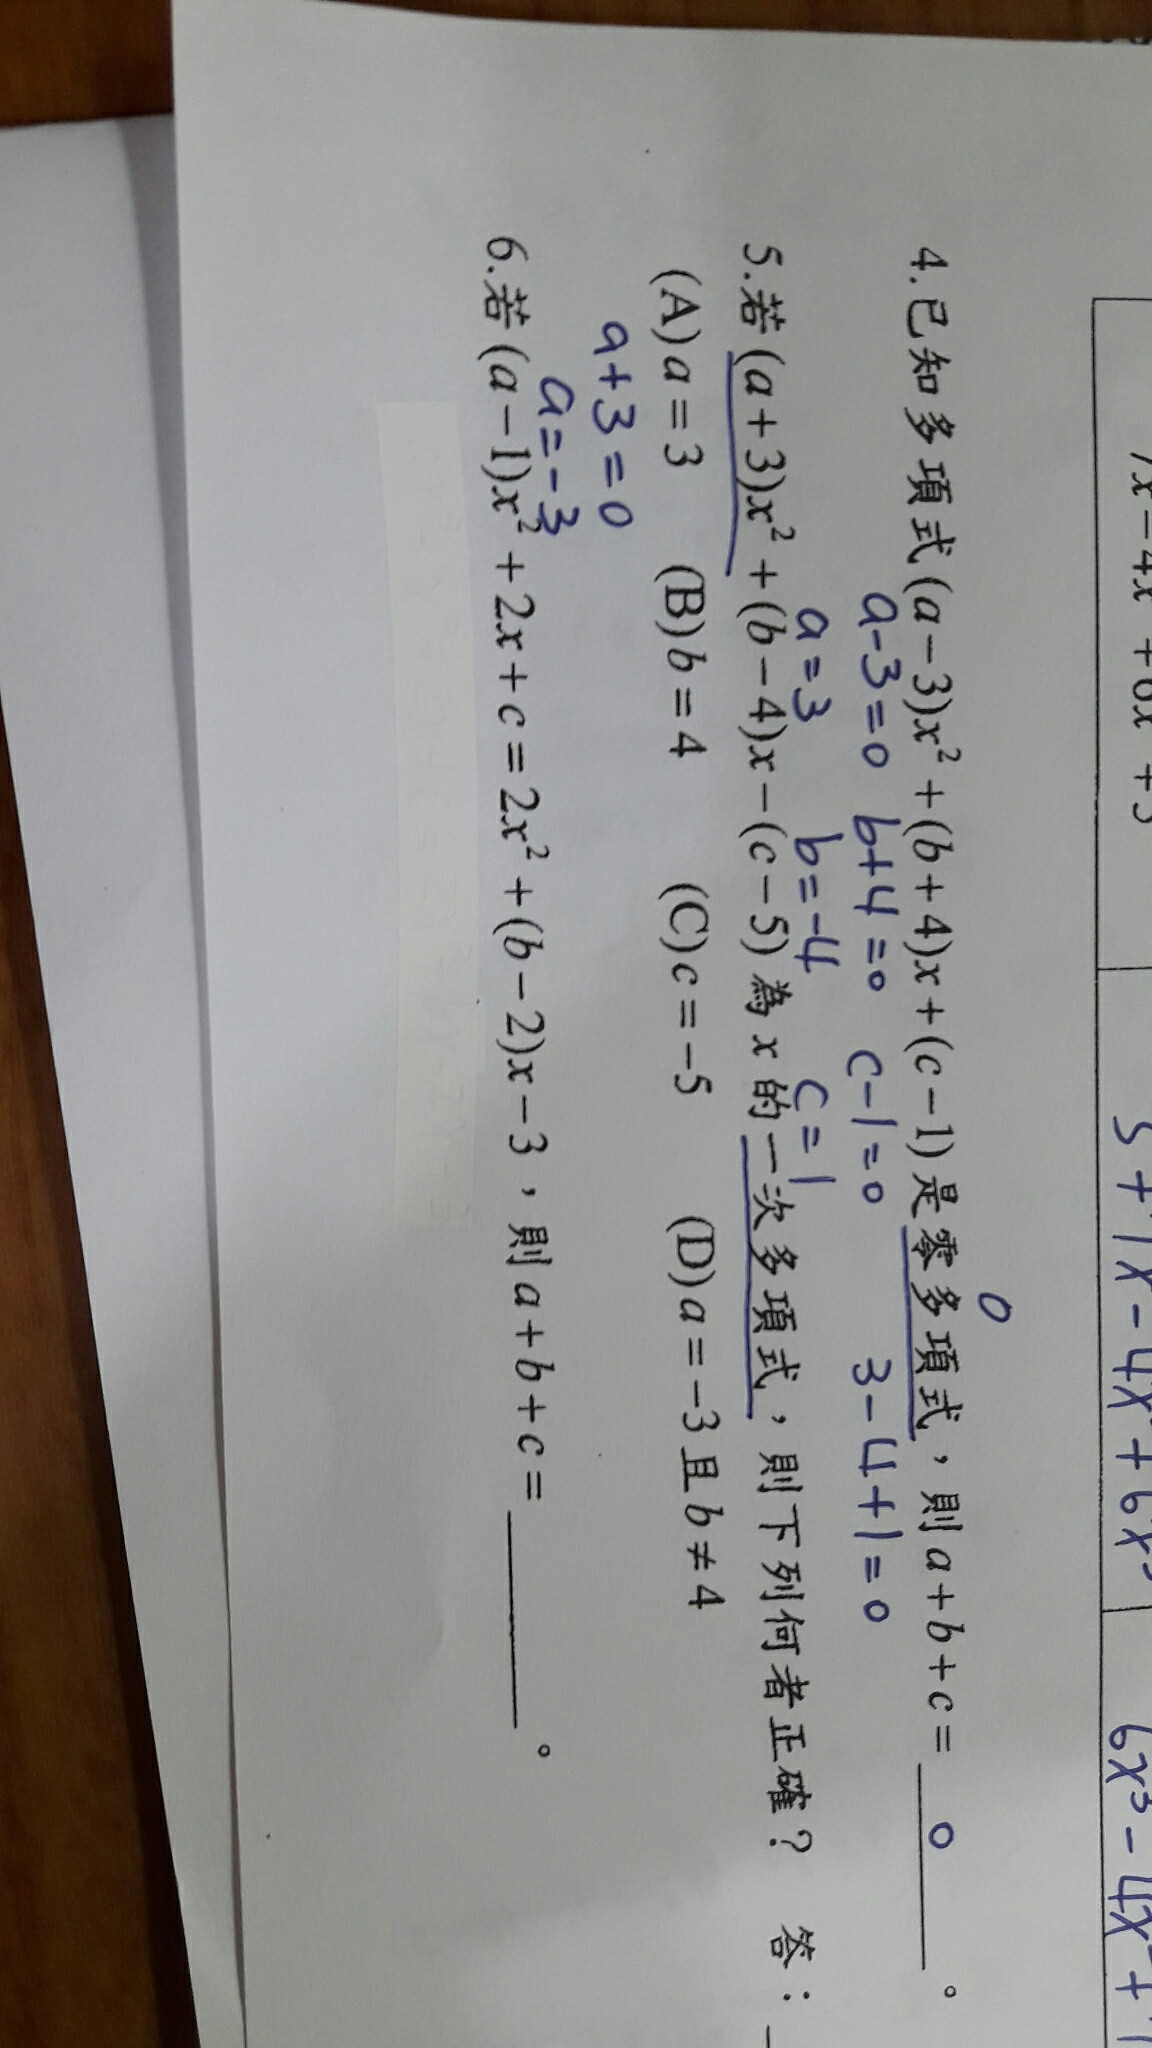 5+7x-4x²+6x³
6x³-4x²+7
4.已知多項式(a-3)x²+(b+4)x+(c-1)是零多項式，則a+b+c=0。
0
a-3=0 b+4=0 c-1=0 3-4+1=0
a=3 b=-4 c=1
5.若(a+3)x²+(b-4)x-(c-5)為x的一次多項式，則下列何者正確？ 答：
(A)a=3 (B)b=4 (C)c=-5 (D)a=-3且b≠4
a+3=0
a=-3
6.若(a-1)x²+2x+c=2x²+(b-2)x-3，則a+b+c=。